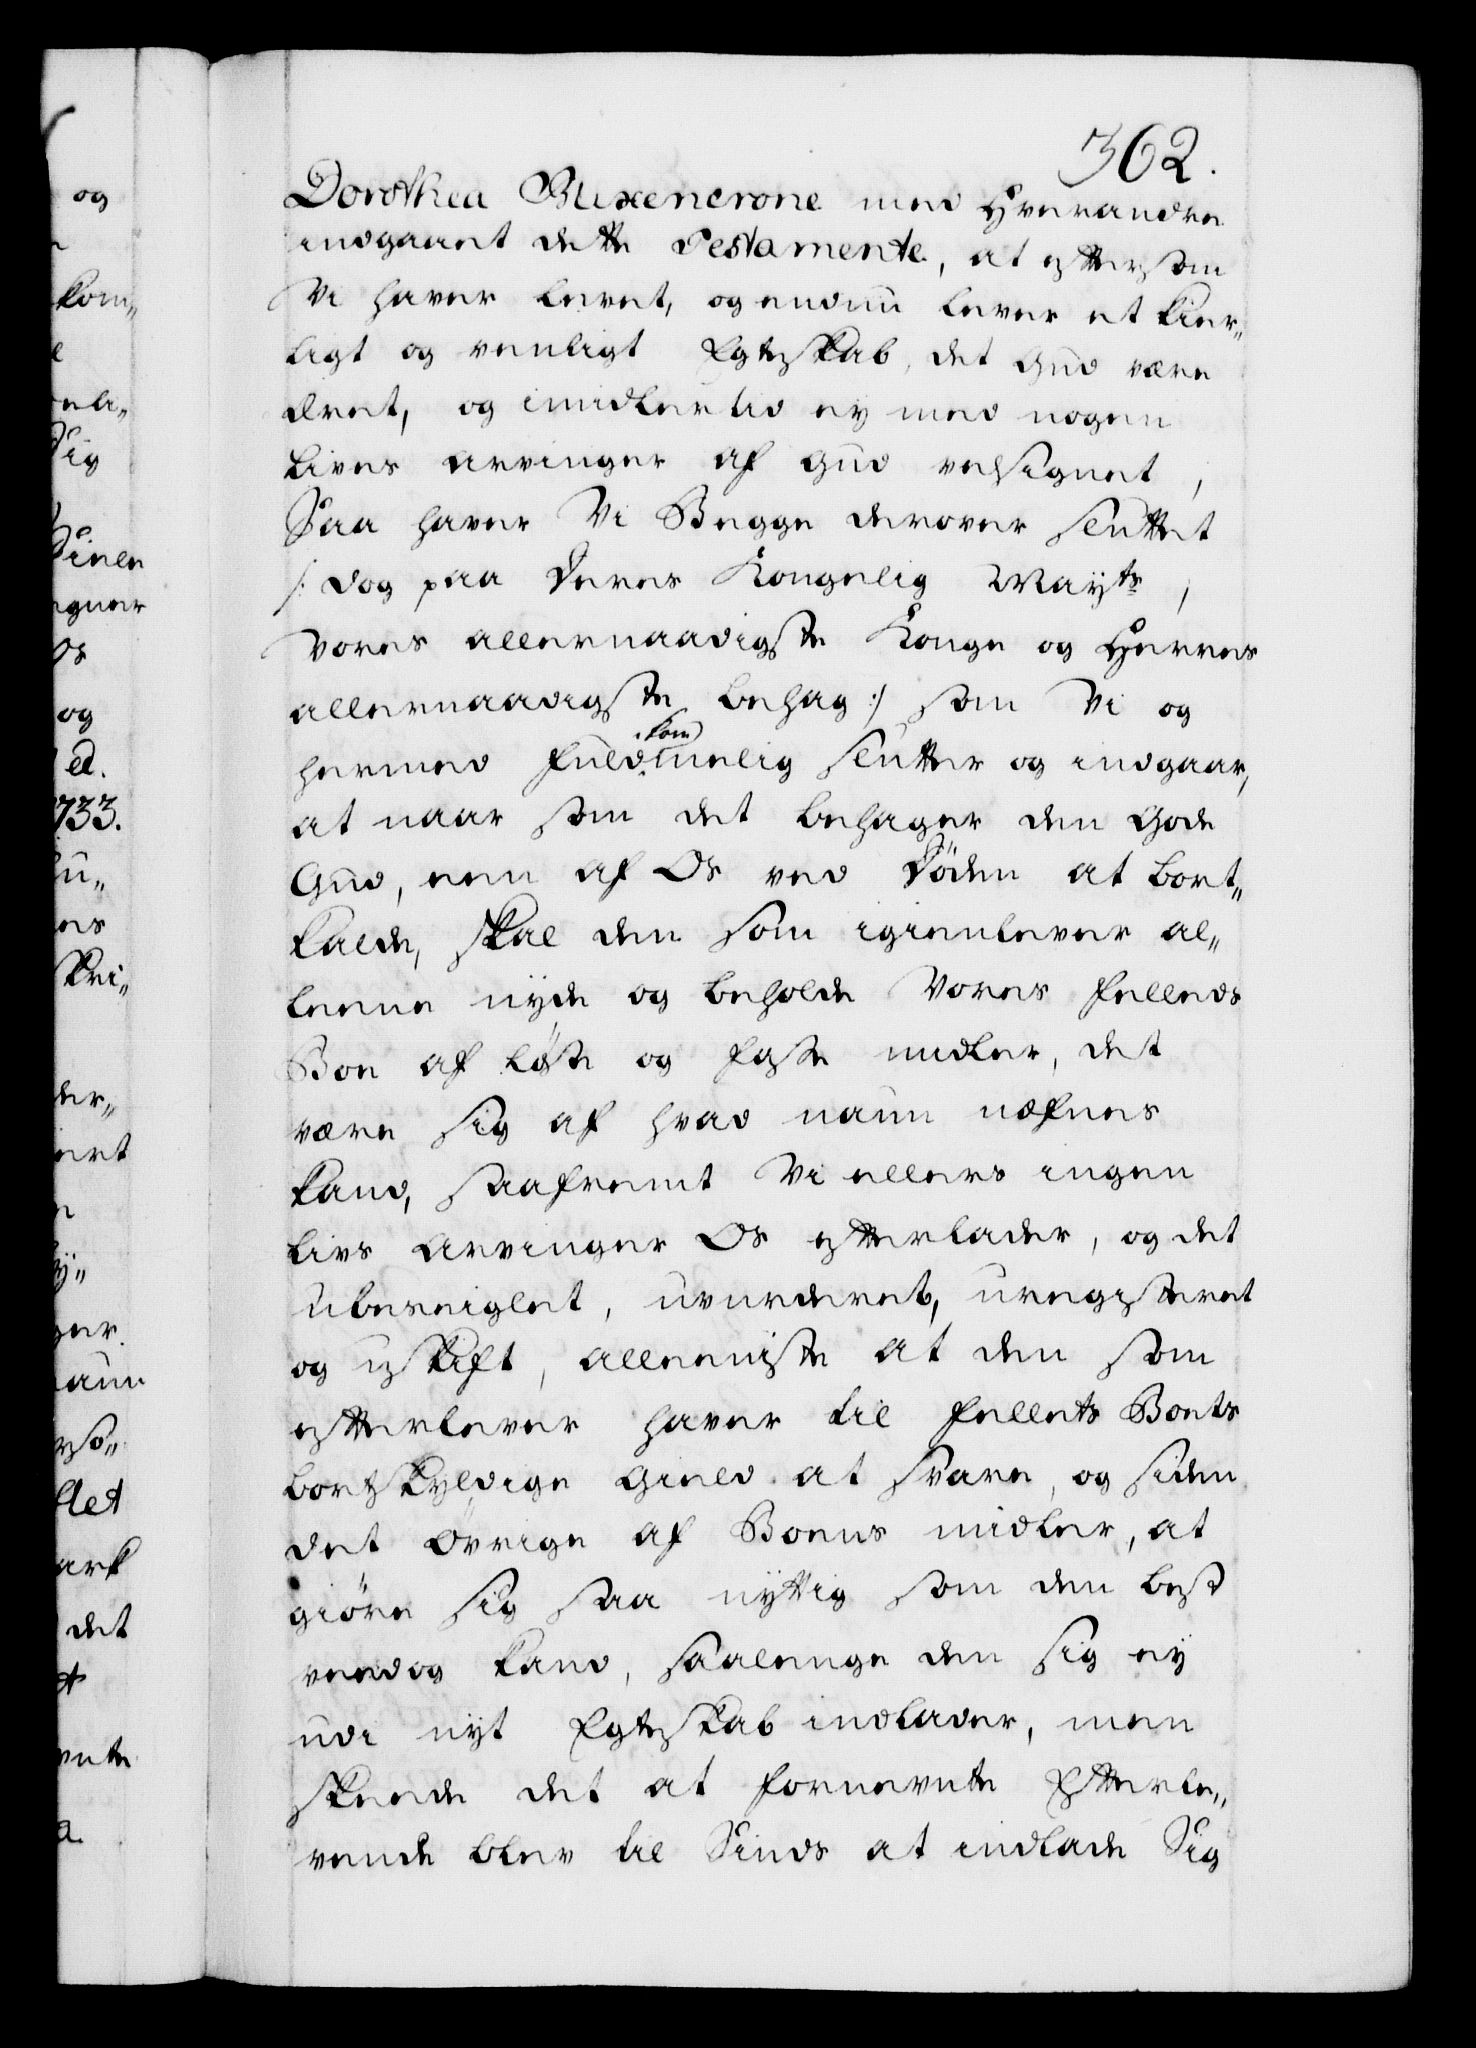 362.
Dorothea Blixencrone med Hverandre
indgaaet dette Testamente, at eftersom
Vi haver levet, og endnu lever et kier„
ligt og venligt Egteskab, det Gud være
æret, og imidlertid ey med nogen
Lives Arvinger af Gud velsignet,
Saa haver Vi Begge derover sluttet
/: dog paa Deres Kongelig Mayts,
Vores allernaadigste Konge og Herres
allernaadigste behag :/ som Vi og
hermed fuldkommelig slutter og indgaar,
at naar som det behager den Gode
Gud, een af Os ved Döden at bort„
kalde, skal den som igienlever al„
leene nyde og beholde Vores fælleds
Boe af löse og faste midler, det
være sig af hvad naun næfnes
kand, saafremt Vi ellers ingen
Livs Arvinger Os efterlader, og det
ubeseiglet, uvurderet, uregisteret
og uskift, alleeniste at den som
efterlever haver til fellets Boets
bortskyldige Gield at svare, og siden
det övrige af Boens midler, at
giöre sig saa nyttig som den best
veed og kand, saalenge den sig ey
udi nyt Egteskab indlader, men
skeede det at fornevnte Efterle„
vende blev til Sinds at indlade Sig
og
kom„
Sig
og
ed.
1733.
det